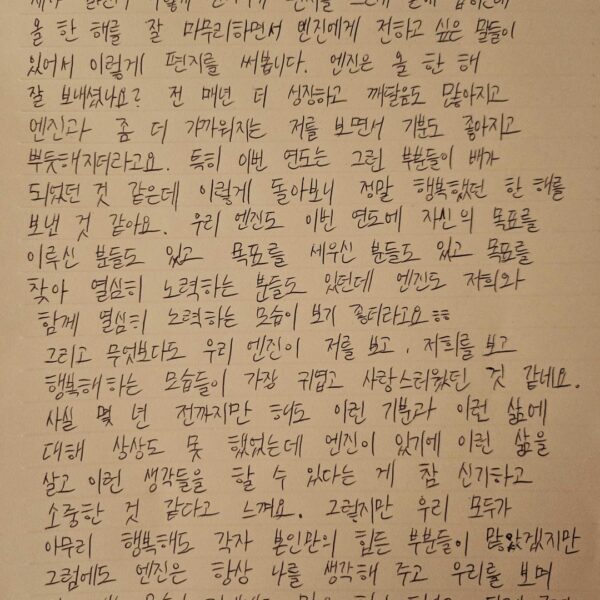 올 한 해를 잘 마무리하면서 엔진에게 전하고 싶은 말들이
있어서 이렇게 편지를 써봅니다. 엔진은 올 한 해
잘 보내셨나요? 전 매년 더 성장하고 깨달음도 많아지고
엔진과 좀 더 가까워지는 저를 보면서 기분도 좋아지고
뿌듯해지더라고요. 특히 이번 연도는 그런 부분들이 배가
되었던 것 같은데 이렇게 돌아보니 정말 행복했던 한 해를
보낸 것 같아요. 우리 엔진도 이번 연도에 자신의 목표를
이루신 분들도 있고 목표를 세우신 분들도 있고 목표를
찾아 열심히 노력하는 분들도 있던데 엔진도 저희와
함께 열심히 노력하는 모습이 보기 좋더라고요ㅎㅎ
그리고 무엇보다도 우리 엔진이 저를 보고, 저희를 보고
행복해하는 모습들이 가장 귀엽고 사랑스러웠던 것 같네요.
사실 몇 년 전까지만 해도 이런 기분과 이런 삶에
대해 상상도 못 했었는데 엔진이 있기에 이런 삶을
살고 이런 생각들을 할 수 있다는 게 참 신기하고
소중한 것 같다고 느껴요. 그렇지만 우리 모두가
아무리 행복해도 각자 본인만의 힘든 부분들이 많았겠지만
그럼에도 엔진은 항상 나를 생각해 주고 우리를 보며